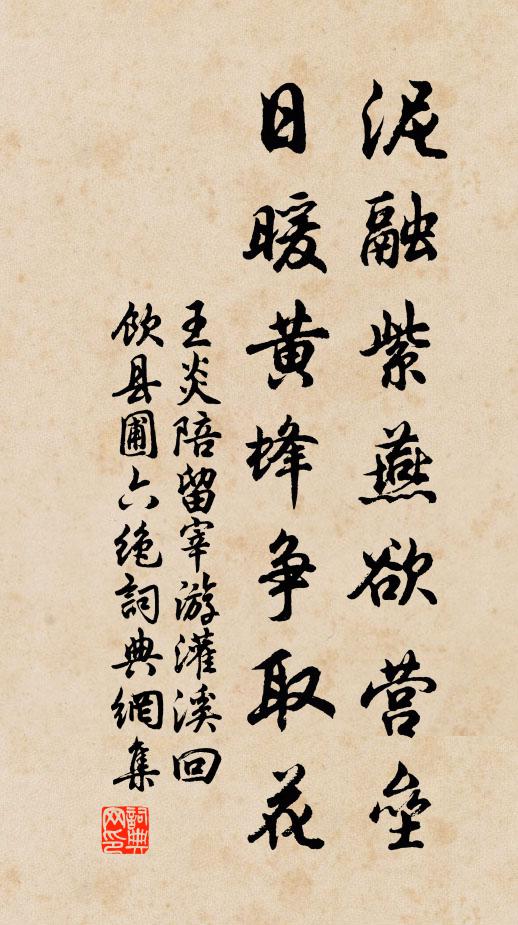 泥融紫燕欲营垒
日暖黄蜂争取花
王炎陪留宰游灌溪回
饮县圃六绝詞典網集
詞典网印